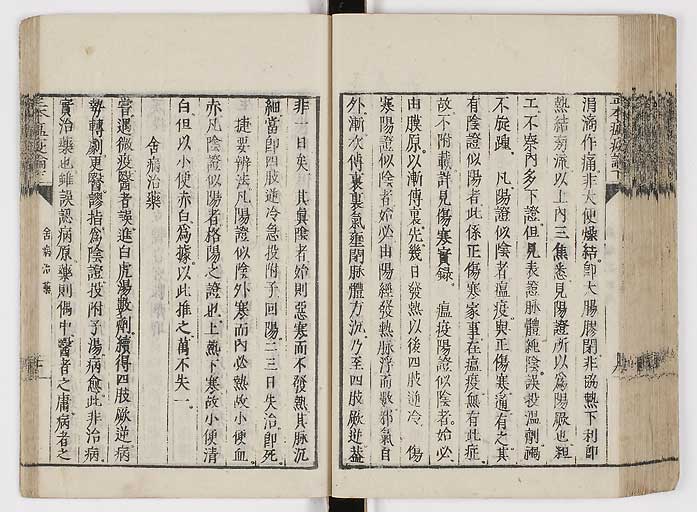 涓滴作痛非大便燥結卽大腸膠閉非協熱下利卽
熱結旁流以上內三焦悉見陽證所以爲陽厥也粗
工不察內多下證但見表證脉體純陰誤投溫劑禍
不旋踵 凡陽證似陰者瘟疫與正傷寒通有之其
有陰證似陽者此係正傷寒家事在瘟疫無有此症
故不附載詳見傷寒實錄 瘟疫陽證似陰者始必
由膜原以漸傳裏先幾日發熱以後四肢逆冷 傷
寒陽證似陰者始必由陽經發熱脉浮而數邪氣自
外漸次傳裏裏氣壅閉脉體方沉乃至四肢厥逆蓋
非一日矣 其眞陰者始則惡寒而不發熱其脉沉
細當卽四肢逆冷急投附子回陽二三日失治卽死
捷要辨法凡陽證似陰外寒而內必熱故小便血
赤凡陰證似陽者格陽之證也上熱下寒故小便淸
白但以小便赤白爲據以此推之萬不失一
舍病治藥
嘗遇微疫醫者誤進白虎湯數劑續得四肢厥逆病
勢轉劇更醫謬指爲陰證投附子湯病愈此非治病
實治藥也雖誤認病原藥則偶中醫者之庸病者之
舍病治藥